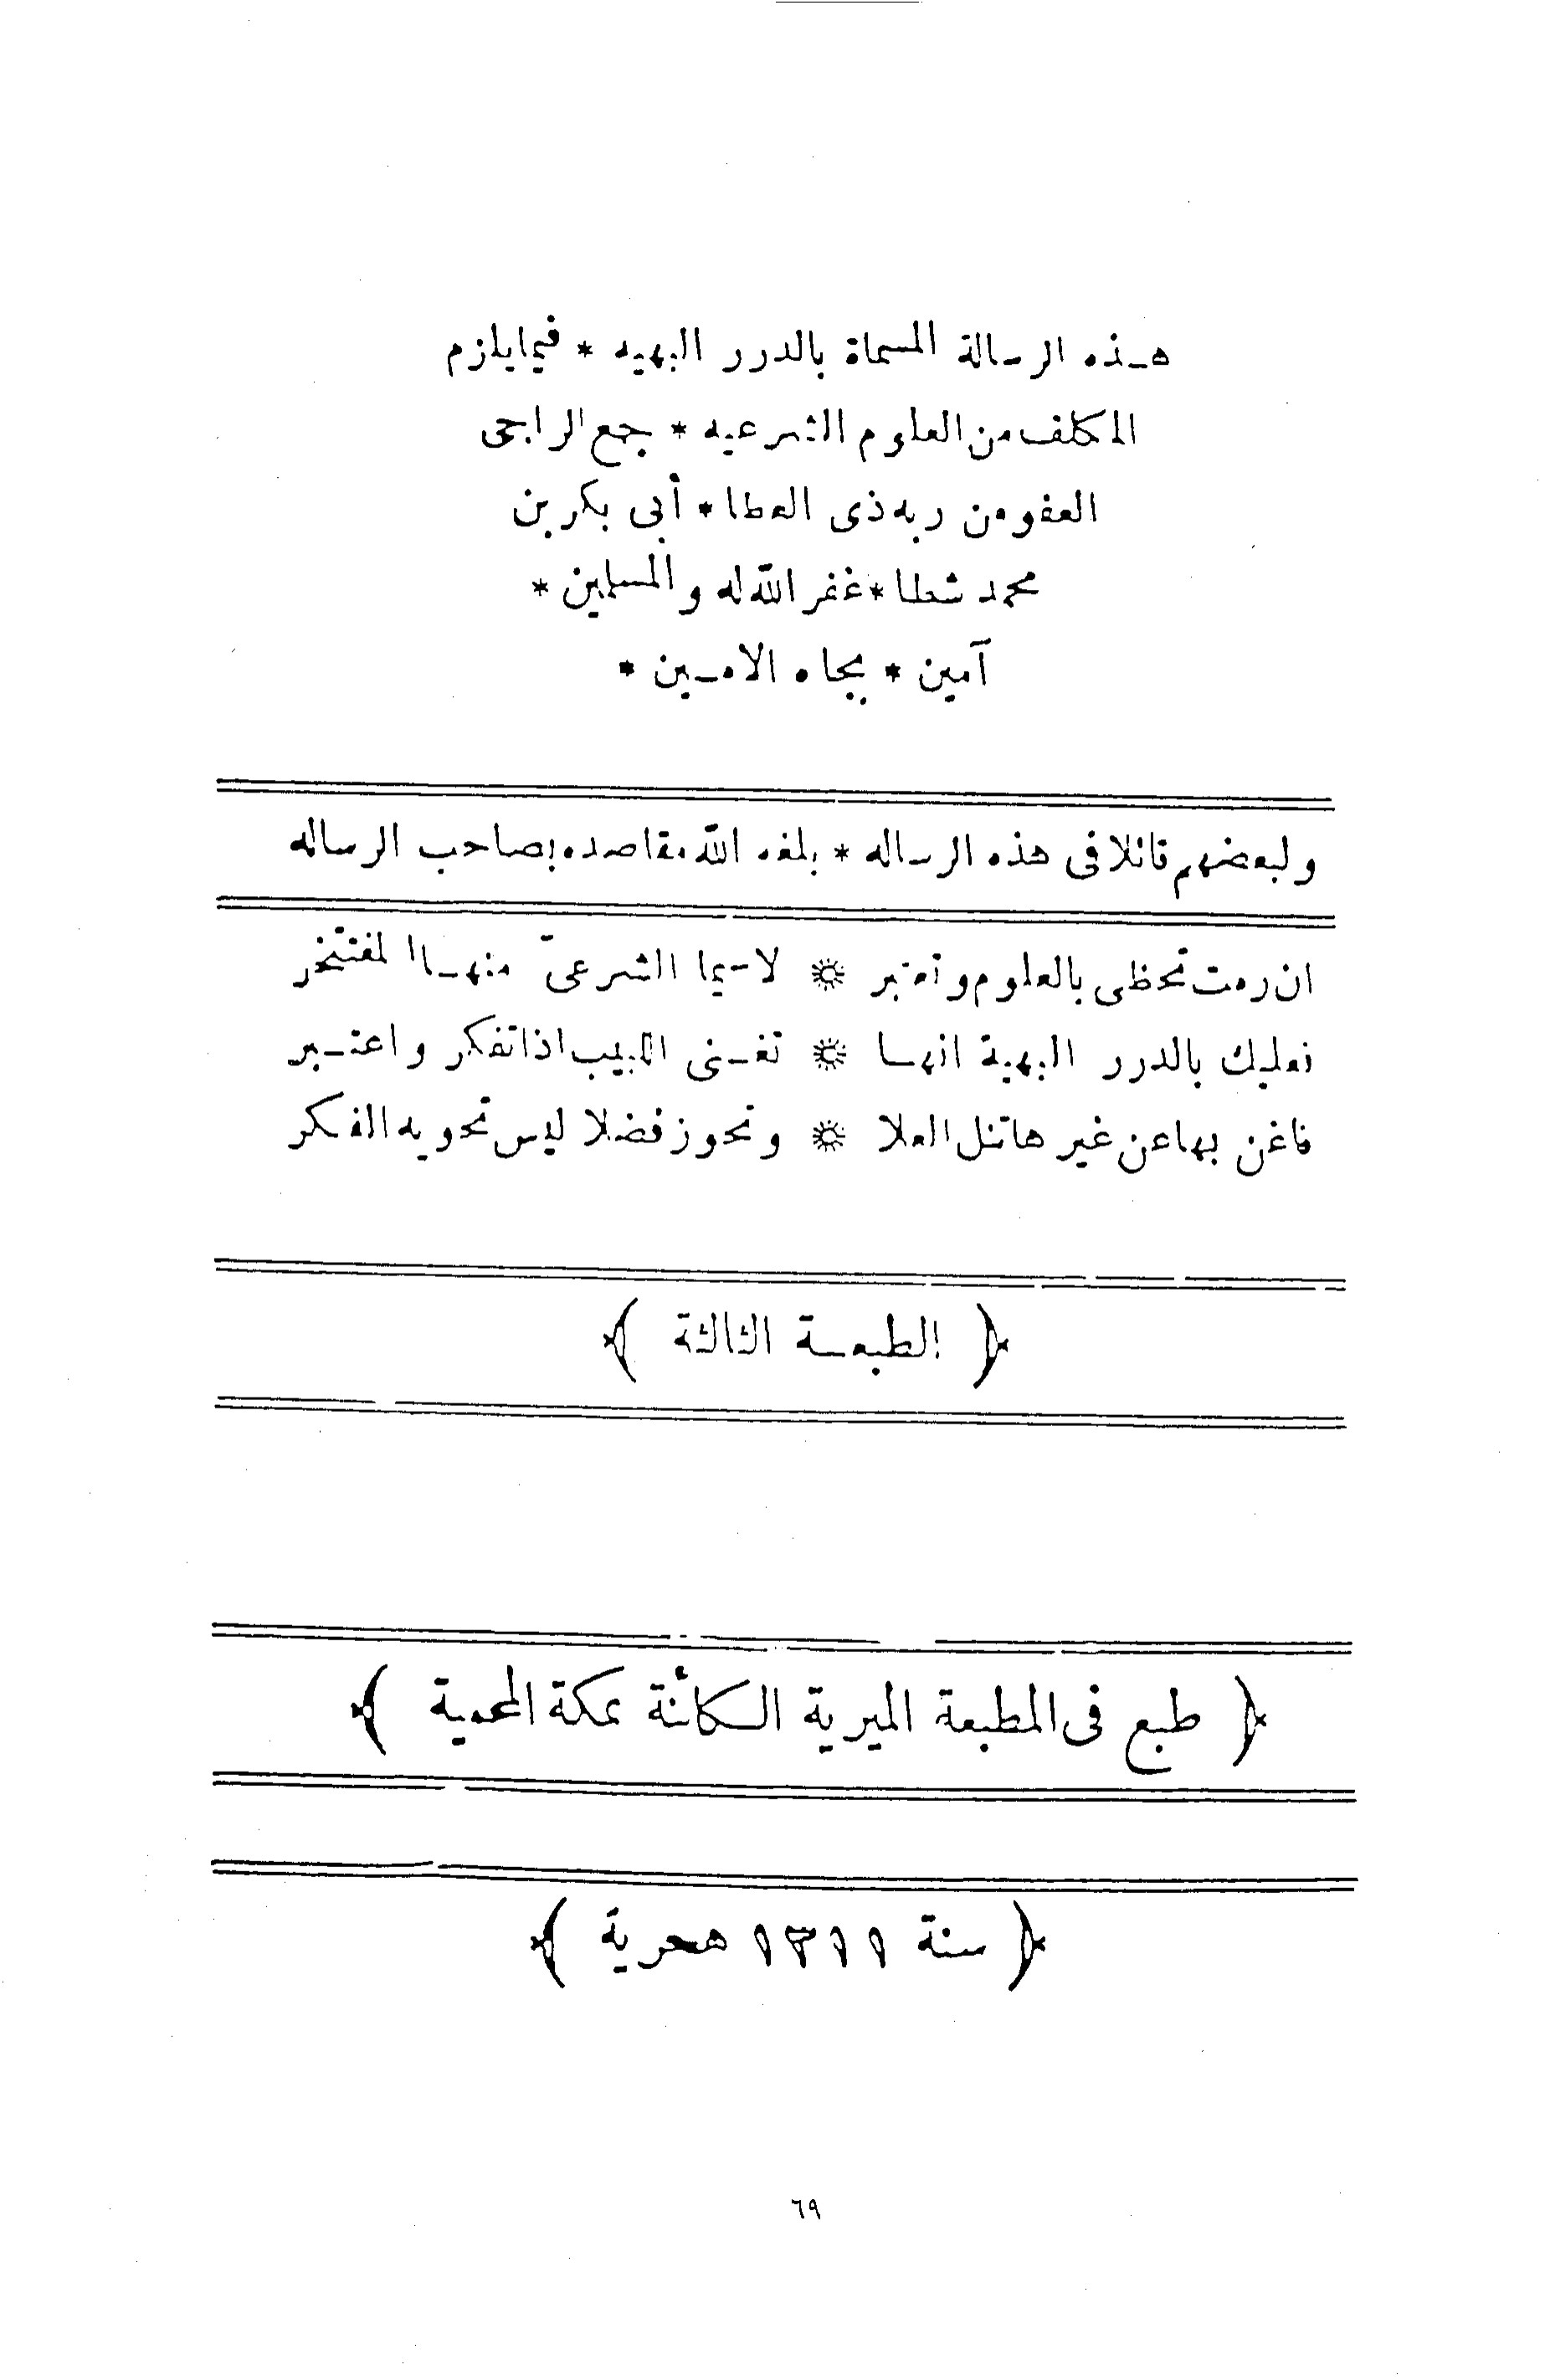 هذه الرسالة المسماة بالدرر البهيه * فيما يلزم
المكلف من العلوم الشرعيه * جمع الراجى
العفو من ربه ذى العطا * أبى بكر بن
محمد شطا * غفر الله له والمسلمين *
آمين * بجاه الامين *
ولبعضهم قائلا فى هذه الرساله * بلغه الله مقاصده بصاحب الرساله
ان رمت تحظى بالعلوم وتعتبر * لاسيما الشرعىّ منها المفتخر
فعليك بالدرر البهية انها * تغنى اللبيب اذا تفكر واعتبر
فاغن بها عن غيرها تنل العلا * وتحوز فضلا ليس تحويه الفكر
﴿ الطبعة الثالثة ﴾
﴿ طبع فى المطبعة الميرية الكائنة بمكة المحمية ﴾
﴿ سنة ١٣١١ هجرية ﴾
٦٩